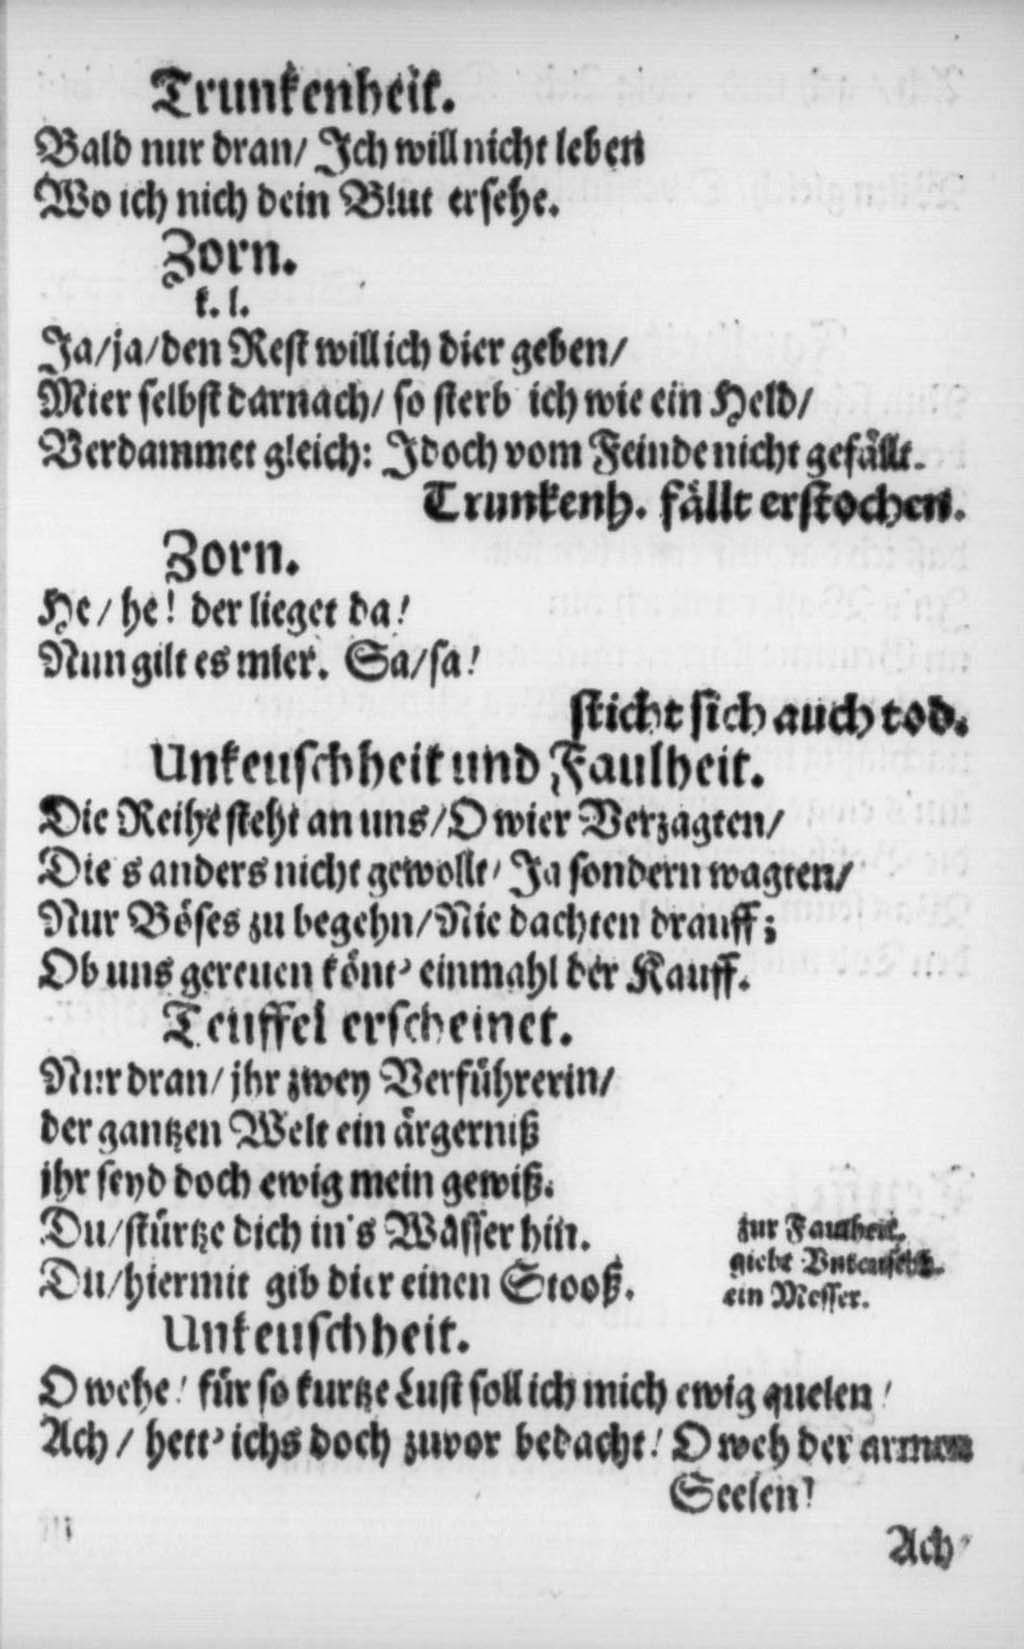 Trunkenheit.
Bald nur dran/ Ich will nicht leben
Wo ich nich dein Blut ersehe.
Zorn.
k. l.
Ja/ja/den Rest will ich dier geben/
Mier selbst darnach/ so sterb ich wie ein Held/
Verdammet gleich: Idoch vom Feinde nicht gefällt.
Trunkenh. fällt erstochen.
Zorn.
He/ he! der lieget da!
Nun gilt es mier. Sa/sa!
sticht sich auch tod.
Unkeuschheit und Faulheit.
Die Reihe steht an uns/O wier Verzagten/
Die s anders nicht gewollt/ Ja sondern wagten/
Nur Böses zu begehn/Nie dachten drauff;
Ob uns gereuen könt' einmahl der Kauff.
Teuffel erscheinet.
Nur dran/ jhr zwey Verführerin/
der gantzen Welt ein ärgerniß
ihr seyd doch ewig mein gewiß.
Du/stürtze dich in's Wasser hin. zur Faulheit.
Du/hiermit gib dier einen Stooß. giebt Vnkeusch.
ein Messer.
Unkeuschheit.
O wehe! für so kurtze Lust soll ich mich ewig quelen!
Ach / hett' ichs doch zuvor bedacht! O weh der armen
Seelen!
Ach